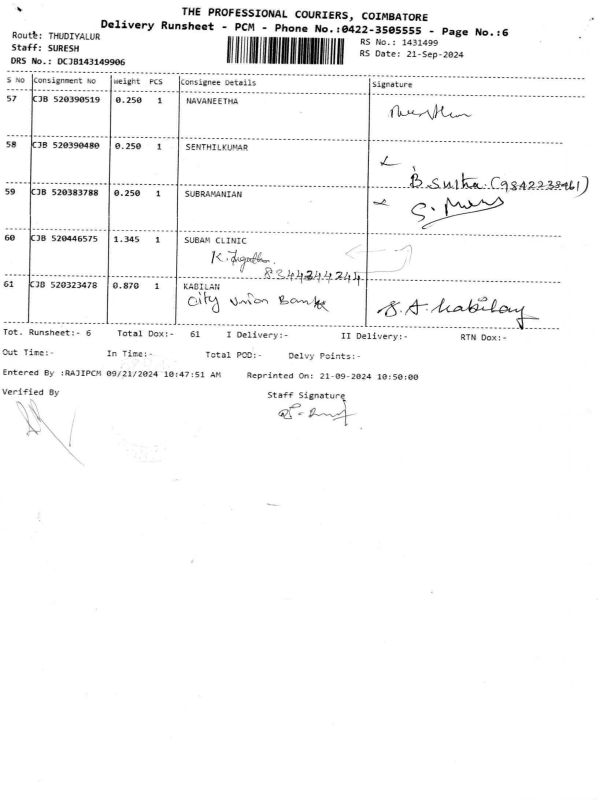 THE PROFESSIONAL COURIERS, COIMBATORE
Delivery Runsheet - PCM - Phone No.:0422-3505555 - Page No.:6
Route: THUDIYALUR
RS No.: 1431499
Staff: SURESH
RS Date: 21-Sep-2024
DRS No.: DCJB143149906
S No Consignment No Weight PCS Consignee Details Signature
57 CJB 520390519 0.250 1 NAVANEETHA
58 CJB 520390480 0.250 1 SENTHILKUMAR
B. Sutha
59 CJB 520383788 0.250 1 SUBRAMANIAN
60 CJB 520446575 1.345 1 SUBAM CLINIC
8344244244
61 CJB 520323478 0.870 1 KABILAN
City Union Bank
Tot. Runsheet:- 6 Total Dox:- 61 I Delivery:- II Delivery:- RTN Dox:-
Out Time:- In Time:- Total POD:- Delvy Points:-
Entered By :RAJIPCM 09/21/2024 10:47:51 AM Reprinted On: 21-09-2024 10:50:00
Verified By Staff Signature